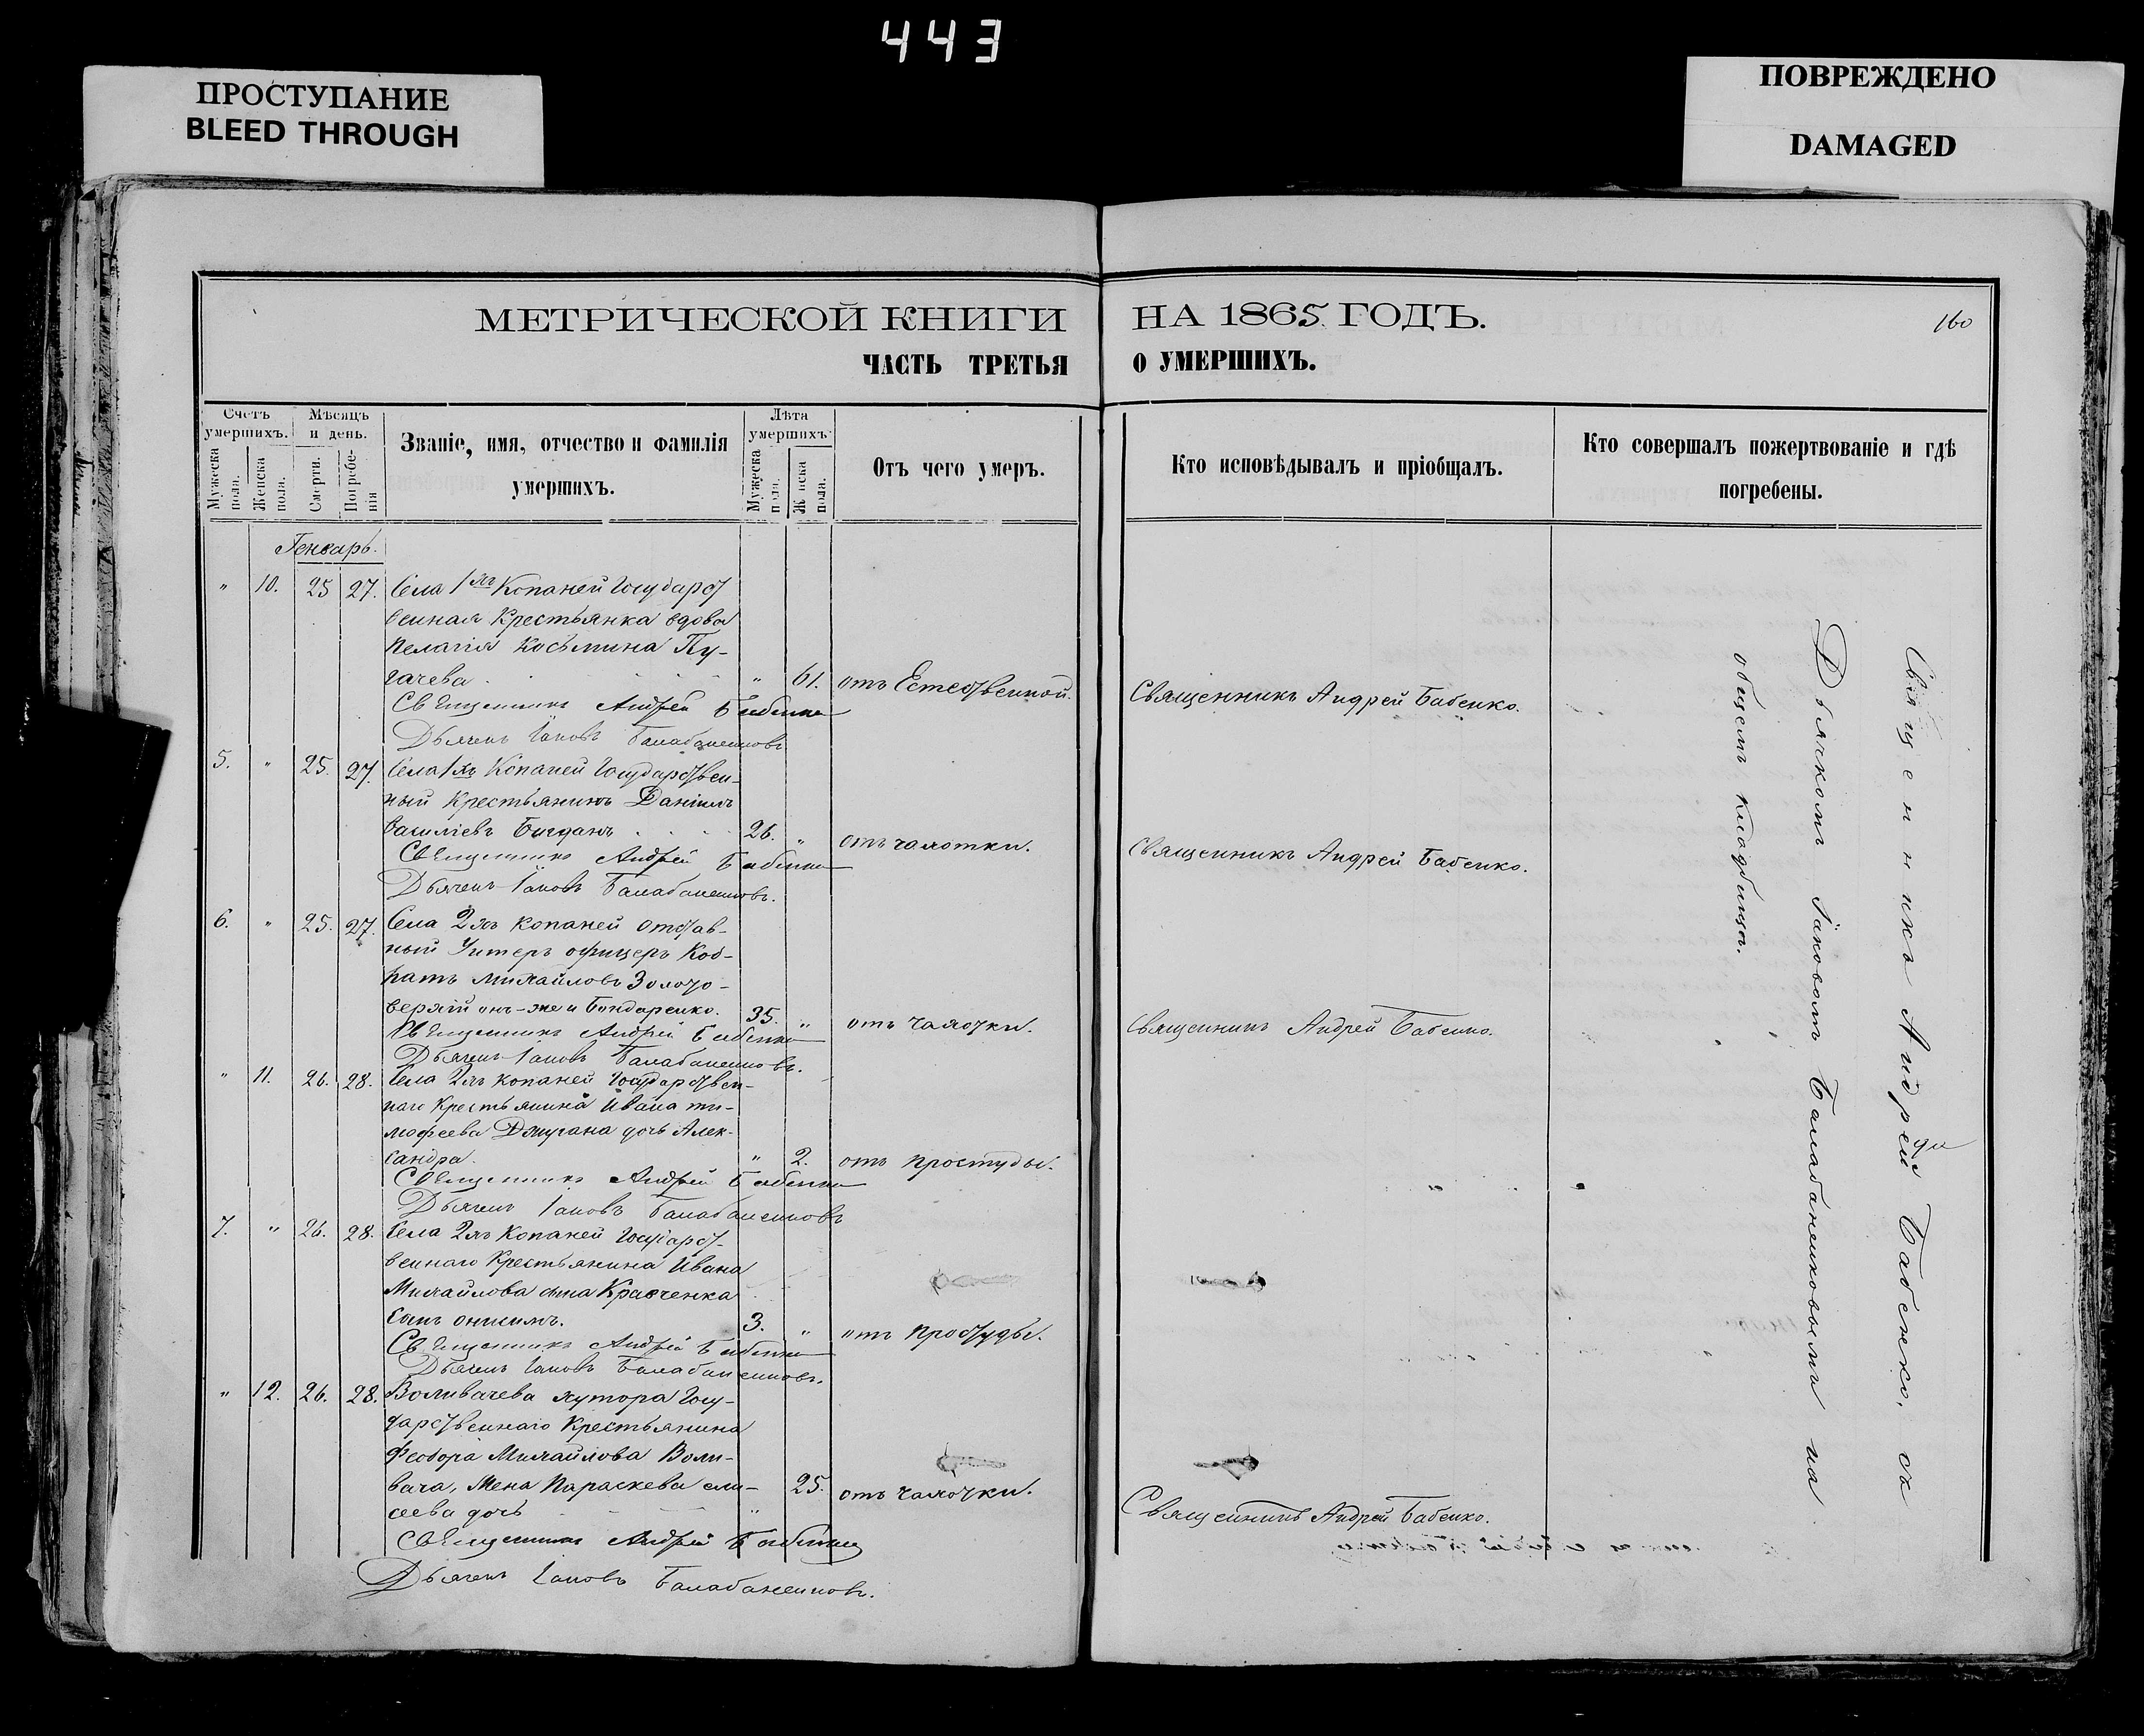 443
ПРОСТУПАНИЕ
BLEED THROUGH
ПОВРЕЖДЕНО
DAMAGED
МЕТРИЧЕСКОЙ КНИГИ НА 1865 ГОДЪ.
160
ЧАСТЬ ТРЕТЬЯ О УМЕРШИХЪ.
Счетъ умершихъ.
Мужеска пола.
Женска пола.
Мѣсяцъ и день.
Смерти.
Погребенія
Званіе, имя, отчество и фамилія
умершихъ.
Лѣта умершихъ
Мужеска пола.
Женска пола.
Отъ чего умеръ.
Кто исповѣдывалъ и пріобщалъ.
Кто совершалъ пожертвованіе и гдѣ
погребены.
Генварь.
" 10. 25 27. Села 1хъ Копаней Государст
венная Крестьянка вдова
Пелагія Косьмина Пу-
гачева " 61. отъ Естественной. Священникъ Андрей Бабенко.
Священникъ Андрей Бабенко
Дьячекъ Іаковъ Балабаненковъ
5. " 25. 27. Села 1хъ Копаней Государствен-
ный Крестьянинъ Даніилъ
Василіевъ 26. " отъ чахотки. Священникъ Андрей Бабенко.
Священникъ Андрей Бабенко
Дьячекъ Іаковъ Балабаненковъ.
6. " 25. 27. Села 2хъ Копаней отстав-
ный Унтеръ офицеръ Код-
ратъ Михайловъ Золото-
верхій онъ-же и Бондаренко. 35. " отъ Чахотки. Священникъ Андрей Бабенко.
Священникъ Андрей Бабенко
Дьячекъ Іаковъ Балабаненковъ.
" 11. 26. 28. Села 2хъ Копаней Государствен-
наго Крестьянина Ивана Ти-
мофеева дочь Алек-
сандра. " 2. отъ простуды.
Священникъ Андрей Бабенко
Дьячекъ Іаковъ Балабаненковъ
7. " 26. 28. Села 2хъ Копаней Государст-
веннаго Крестьянина Ивана
Михайлова сына Кравченка
сынъ Онисимъ. 3. " отъ простуды.
Священникъ Андрей Бабенко
Дьячекъ Іаковъ Балабаненковъ.
" 12. 26. 28. Воливачева хутора Госу-
дарственнаго Крестьянина
Феодора Михайлова Воли-
вача, Жена Параскева Ели- 25. отъ чахотки.
сеева дочь " Священникъ Андрей Бабенко.
Священникъ Андрей Бабенко
Дьячекъ Іаковъ Балабаненковъ.
Священникъ Андрей Бабенко, съ
Дьячкомъ Іаковомъ Балабаненковымъ на
общемъ кладбищѣ.